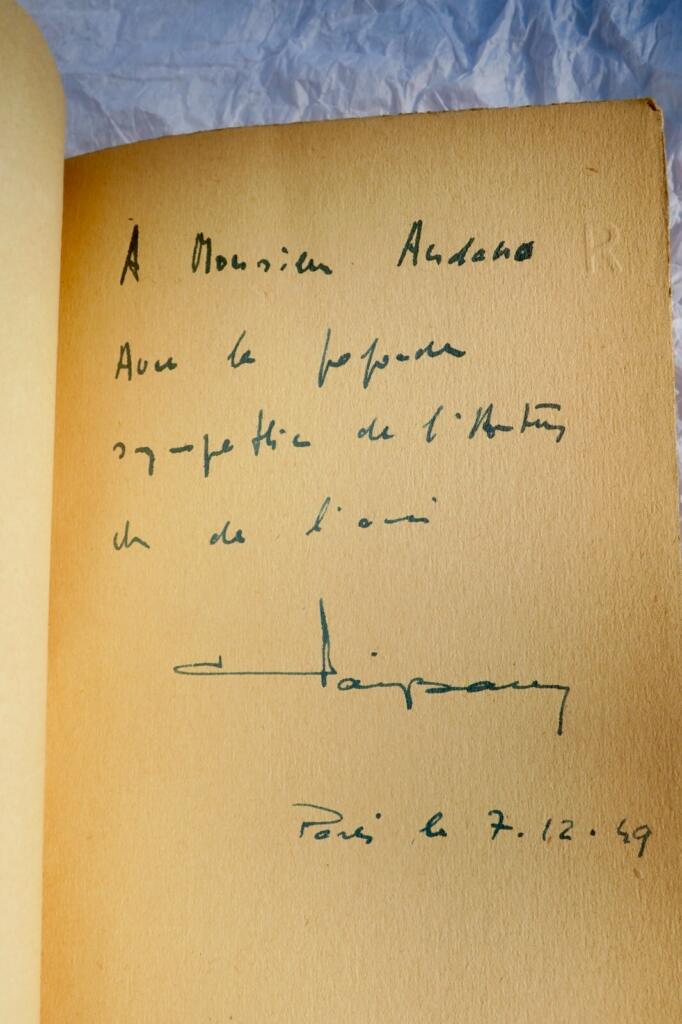 À Monsieur
R
Avec la profonde
sympathie de l'Auteur
et de l'ami
Paris le 7.12.49